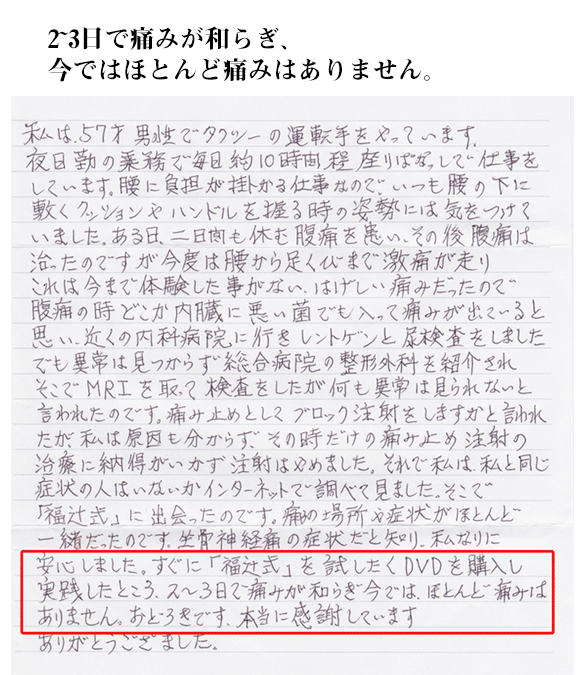 2~3日で痛みが和らぎ、
今ではほとんど痛みはありません。
私は、57才男性でタクシーの運転手をやっています。
夜日勤の業務で毎日約10時間程座りぱなっしで仕事を
しています。腰に負担が掛かる仕事なので、いつも腰の下に
敷くクッションやハンドルを握る時の姿勢には気をつけて
いました。ある日、二日間も休む腹痛を患い、その後腹痛は
治ったのですが今度は腰から足くびまで激痛が走り
これは今まで体験した事がない、はげしい痛みだったので
腹痛の時どこか内臓に悪い菌でも入って痛みが出ていると
思い、近くの内科病院に行きレントゲンと尿検査をしました
でも異常は見つからず総合病院の整形外科を紹介され
そこでMRIを取って検査をしたが何も異常は見られないと
言われたのです。痛み止めとしてブロック注射をしますかと言われ
たが私は原因も分からず、その時だけの痛み止め注射の
治療に納得がいかず注射はやめました。それで私は、私と同じ
症状の人はいないかインターネットで調べて見ました。そこで
「福辻式」に出会ったのです。痛みの場所や症状がほとんど
一緒だったのです。坐骨神経痛の症状だと知り、私なりに
安心しました。すぐに「福辻式」を試したくDVDを購入し
実践したところ、2〜3日で痛みが和らぎ今では、ほとんど痛みは
ありません。おどろきです、本当に感謝しています
ありがとうございました。